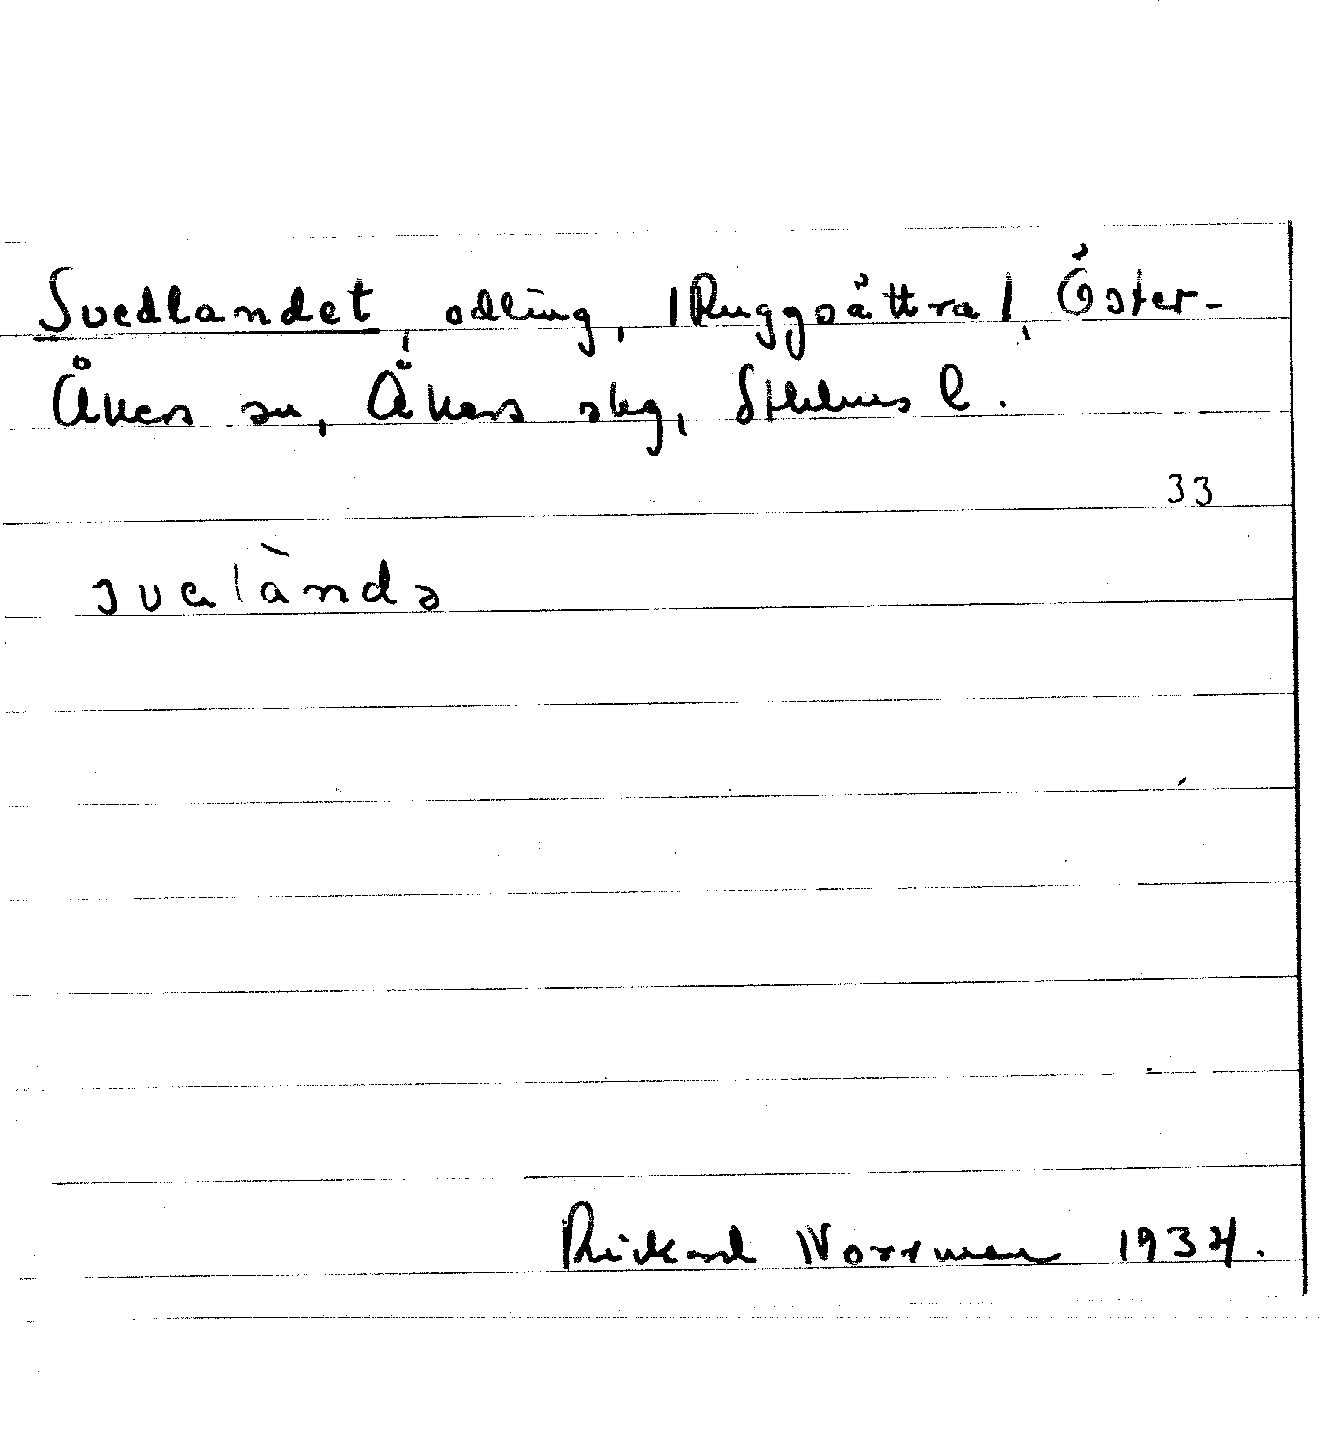 Svedlandet, odling, |Ruggsättra|, Öster-
Åkers sn, Åkers skg, Sthlms l.
33
svelàndə
Rickard Norrman 1934.